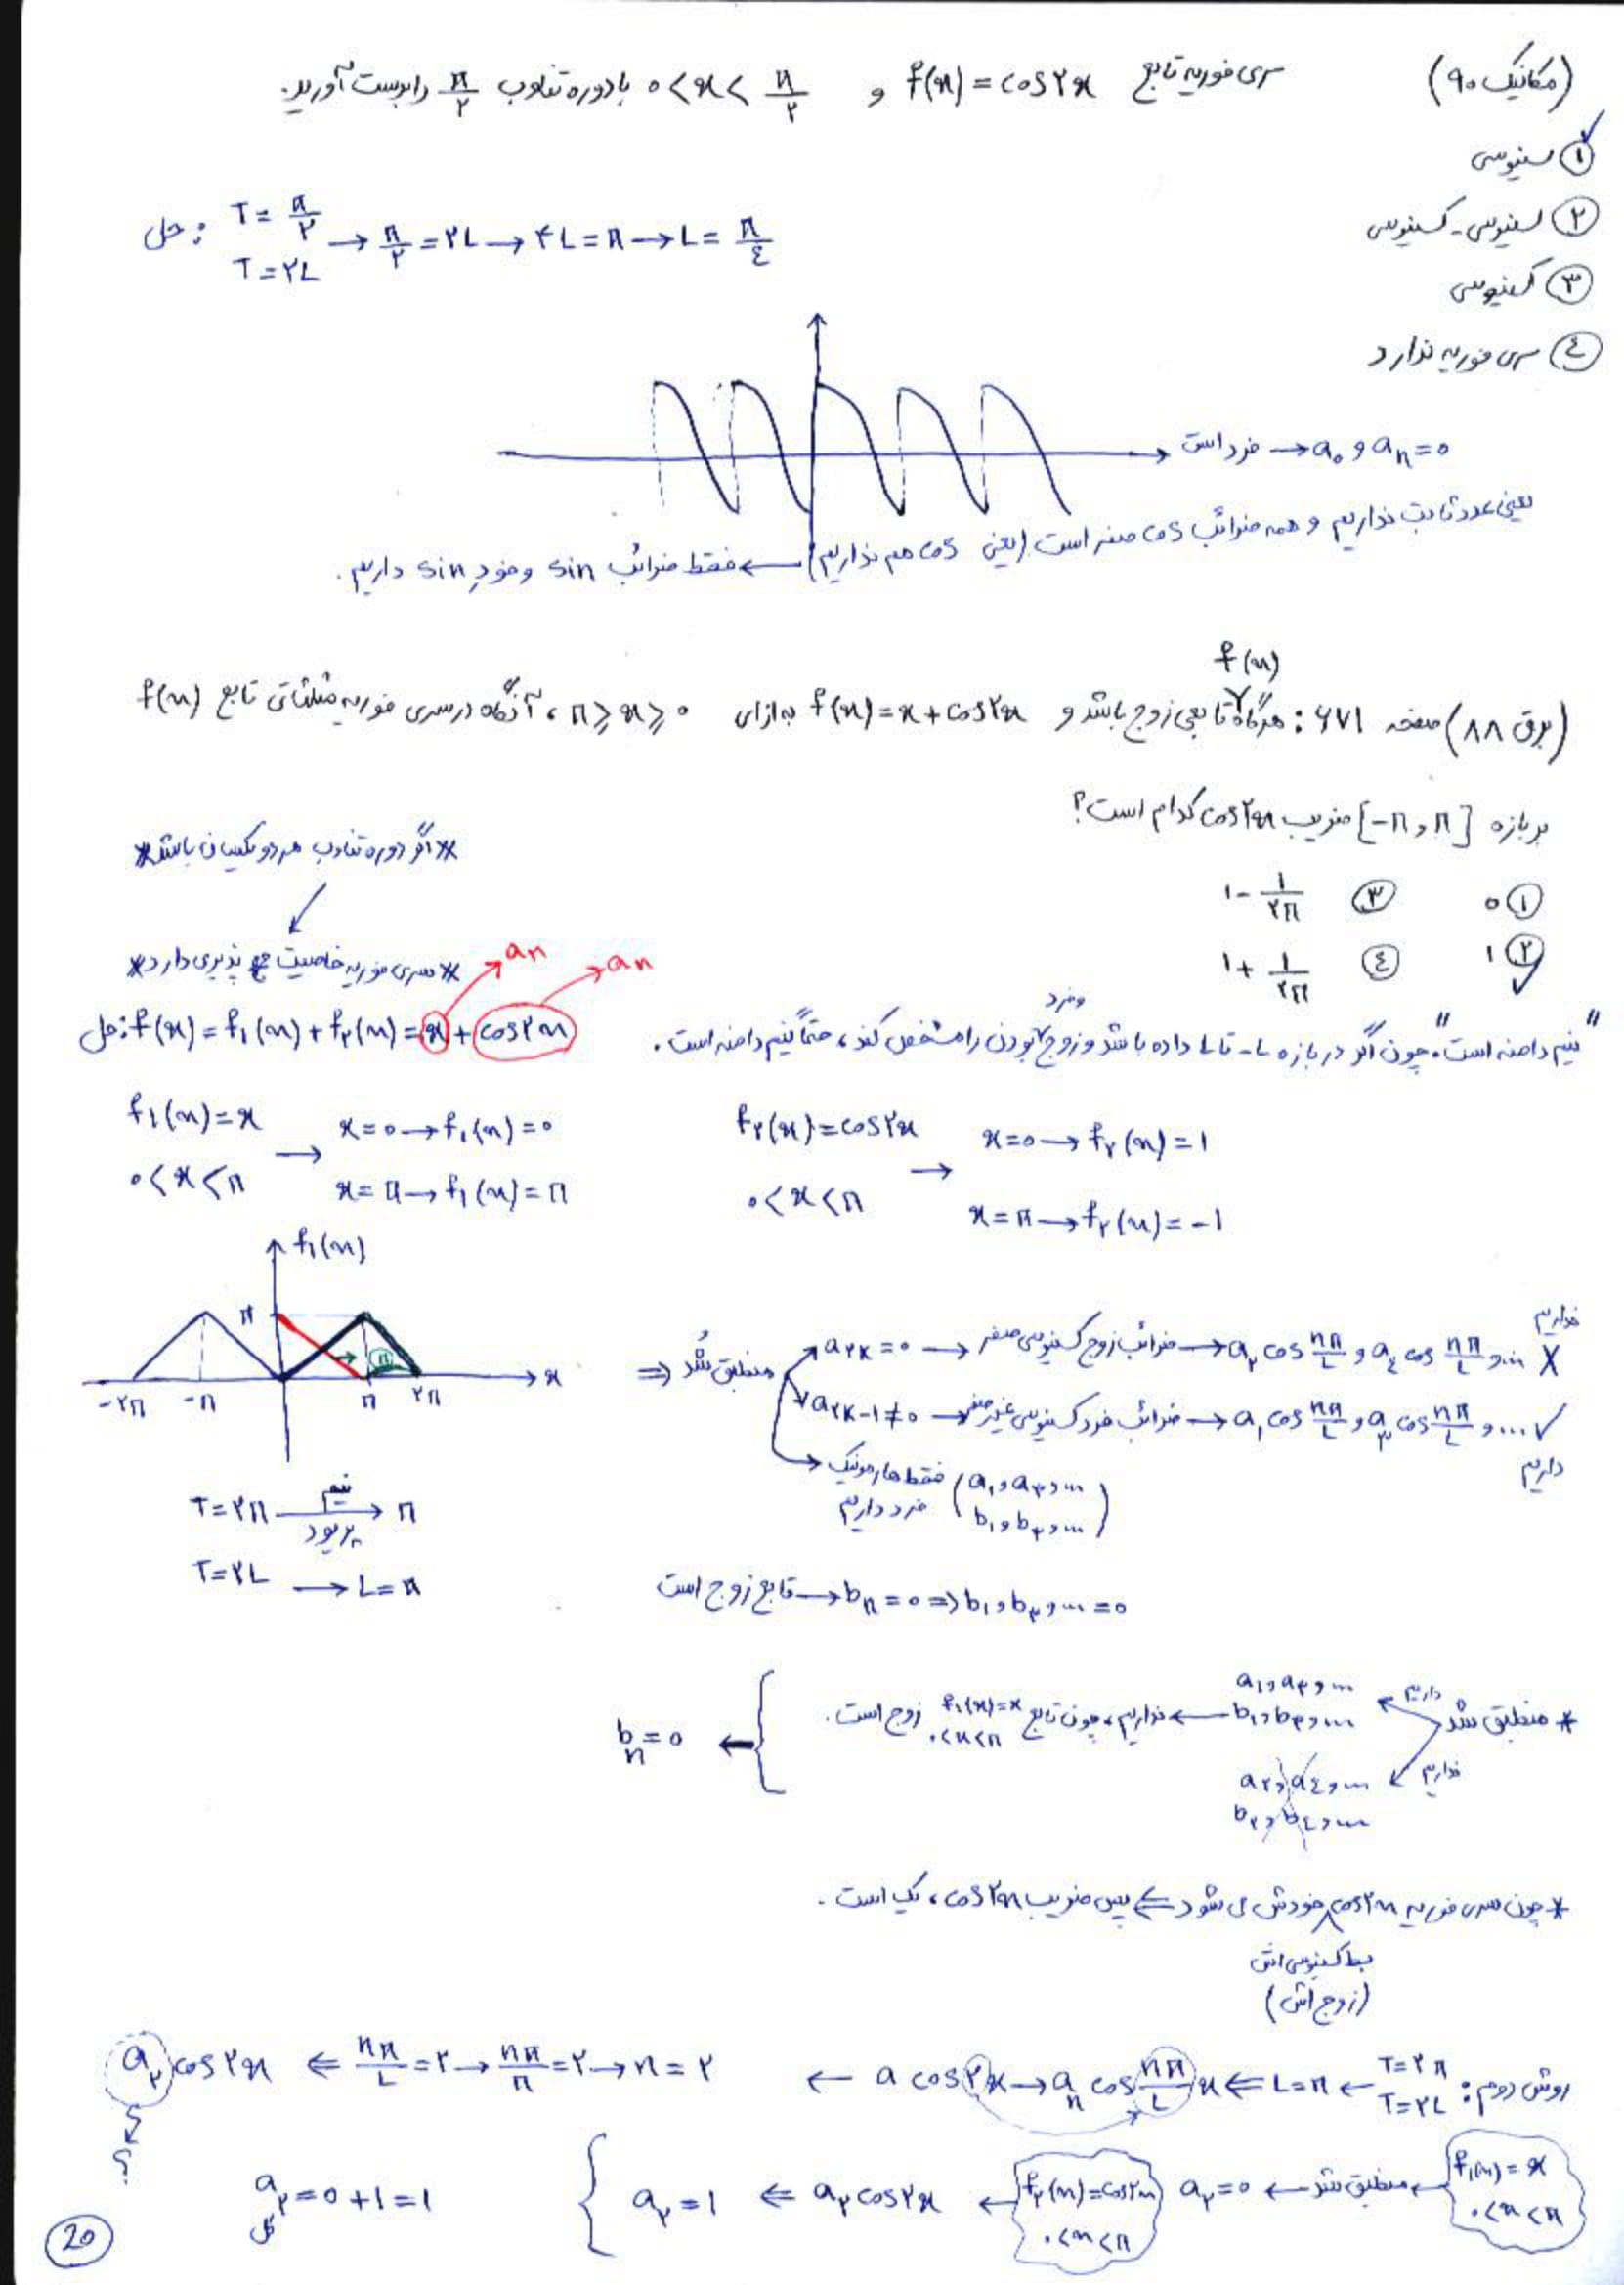 (مکانیک ۹۰) سری فوریه تابع f(x) = cos۲x و ۰ < x < π/۲ با دوره تناوب π/۲ را بدست آورید.
① سینوسی ✓
② سینوسی-کسینوسی
③ کسینوسی
④ سری فوریه ندارد
حل: T = π/۲ , T = ۲L → π/۲ = ۲L → ۴L = π → L = π/٤
فرد است → a₀ و aₙ = ۰
یعنی عدد ثابت نداریم و همه ضرائب cos صفر است (یعنی cos هم نداریم) ←
فقط ضرائب sin و خودِ sin داریم.
(برق ۸۸) صفحه ۶۷۱: هرگاه f(x) تابعی زوج باشد و f(x) = x + cos۲x به ازای π ≥ x ≥ ۰، آنگاه در سری فوریه مثلثاتی تابع f(x)
بر بازه [-π, π] ضریب cos۲x کدام است؟
① ۰ ③ ۱ - ۱/۲π
② ۱ ✓ ④ ۱ + ۱/۲π
** اگر دوره تناوب هر دو یکسان باشد **
** سری فوریه خاصیت جمع پذیری دارد **
"نیم دامنه است". چون اگر در بازه L- تا L داده باشد و زوج و فرد بودن را مشخص کند، حتماً نیم دامنه است.
حل: f(x) = f₁(x) + f₂(x) = x + cos۲x
aₙ aₙ
f₁(x) = x
۰ < x < π → x = ۰ → f₁(x) = ۰
x = π → f₁(x) = π
f₂(x) = cos۲x
۰ < x < π → x = ۰ → f₂(x) = 1
x = π → f₂(x) = -1
f₁(x)
π
-۲π -π π ۲π x
⇒ منطبق شد
a₂ₖ = ۰ → ضرائب زوج کسینوسی صفر → a₂ cos nπ/L و a₄ cos nπ/L و ... ✗ نداریم
a₂ₖ₋₁ ≠ ۰ → ضرائب فرد کسینوسی غیر صفر → a₁ cos nπ/L و a₃ cos nπ/L و ... ✓ داریم
فقط هارمونیک فرد داریم (a₁ و a₃ و ... b₁ و b₃ و ...)
T = ۲π نیم پریود → π
T = ۲L → L = π
تابع زوج است → bₙ = ۰ ⇒ b₁ و b₃ و ... = ۰
* منطبق شد
داریم a₁ و a₃ و ...
b₁ و b₃ و ... ← نداریم، چون تابع f₁(x) = x ۰<x<π زوج است.
نداریم a₂ و a₄ و ...
b₂ و b₄ و ...
← bₙ = ۰
* چون سری فوریه cos۲x خودش می شود ⇐ پس ضریب cos۲x، یک است.
بسط کسینوسی اش
(زوج اش)
روش دوم: T = ۲π , T = ۲L ← L = π ⇐ a cos۲x → aₙ cos nπ/L x ←
nπ/L = ۲ → nπ/π = ۲ → n = ۲ ⇒ a₂ cos۲x
؟
f₁(x) = x ۰<x<π ← منطبق شد ← a₂ = ۰
f₂(x) = cos۲x ۰<x<π ← a₂ cos۲x ⇐ a₂ = 1
a₂ کل = ۰ + 1 = 1
20